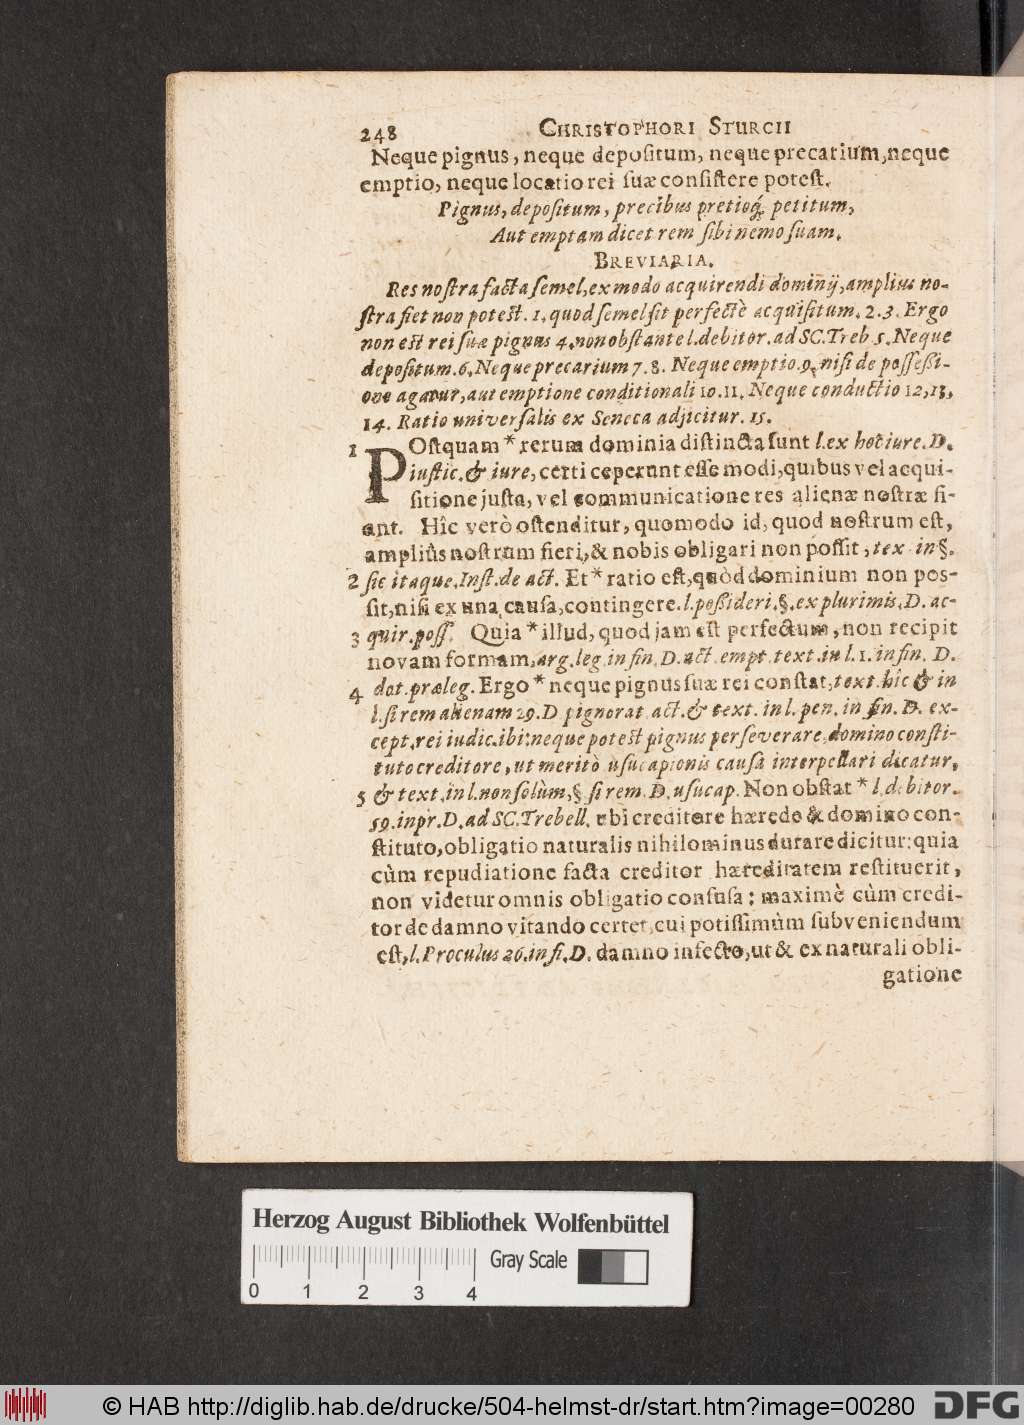 248 CHRISTOPHORI STURCII
Neque pignus, neque depositum, neque precarium, neque
emptio, neque locatio rei suæ consistere potest.
Pignus, depositum, precibus pretioq́; petitum,
Aut emptam dicet rem sibi nemo suam.
BREVIARIA.
Res nostra facta semel, ex modo acquirendi dominij, amplius no-
stra fiet non potest. 1. quod semel sit perfectè acquisitum. 2.3. Ergo
non est rei suæ pignus 4. non obstante l. debitor. ad SC. Treb 5. Neque
depositum. 6. Neque precarium 7. 8. Neque emptio. 9. nisi de possessi-
one agatur, aut emptione conditionali 10. 11. Neque conductio 12, 13,
14. Ratio universalis ex Seneca adjicitur. 15.
1 POstquam * rerum dominia distincta sunt l. ex hoc iure. D.
iustic. & iure, certi ceperunt esse modi, quibus vel acqui-
sitione justa, vel communicatione res alienæ nostræ fi-
ant. Hîc verò ostenditur, quomodo id, quod nostrum est,
ampliùs nostrum fieri, & nobis obligari non possit, tex in §.
2 sic itaque. Inst. de act. Et * ratio est, quòd dominium non pos-
sit, nisi ex una causa, contingere. l. possideri. §. ex plurimis. D. ac-
3 quir. poss. Quia * illud, quod jam est perfectum, non recipit
novam formam, arg. leg. in fin. D. act. empt. text. in l. 1. in fin. D.
4 dot. præleg. Ergo * neque pignus suæ rei constat, text. hîc & in
l. si rem alienam 29. D pignorat. act. & text. in l. pen. in fin. D. ex-
cept. rei iudic. ibi: neque potest pignus perseverare domino consti-
tuto creditore, ut meritò usucapionis causa interpellari dicatur,
5 & text. in l. non solùm, § si rem. D. usucap. Non obstat * l. debitor.
59. in pr. D. ad SC. Trebell. ubi creditore hærede & domino con-
stituto, obligatio naturalis nihilominus durare dicitur: quia
cùm repudiatione facta creditor hæreditatem restituerit,
non videtur omnis obligatio confusa: maximè cùm credi-
tor de damno vitando certet, cui potissimùm subveniendum
est, l. Proculus 26. in fi. D. damno infecto, ut & ex naturali obli-
gatione
Herzog August Bibliothek Wolfenbüttel
Gray Scale
0 1 2 3 4
© HAB http://diglib.hab.de/drucke/504-helmst-dr/start.htm?image=00280 DFG